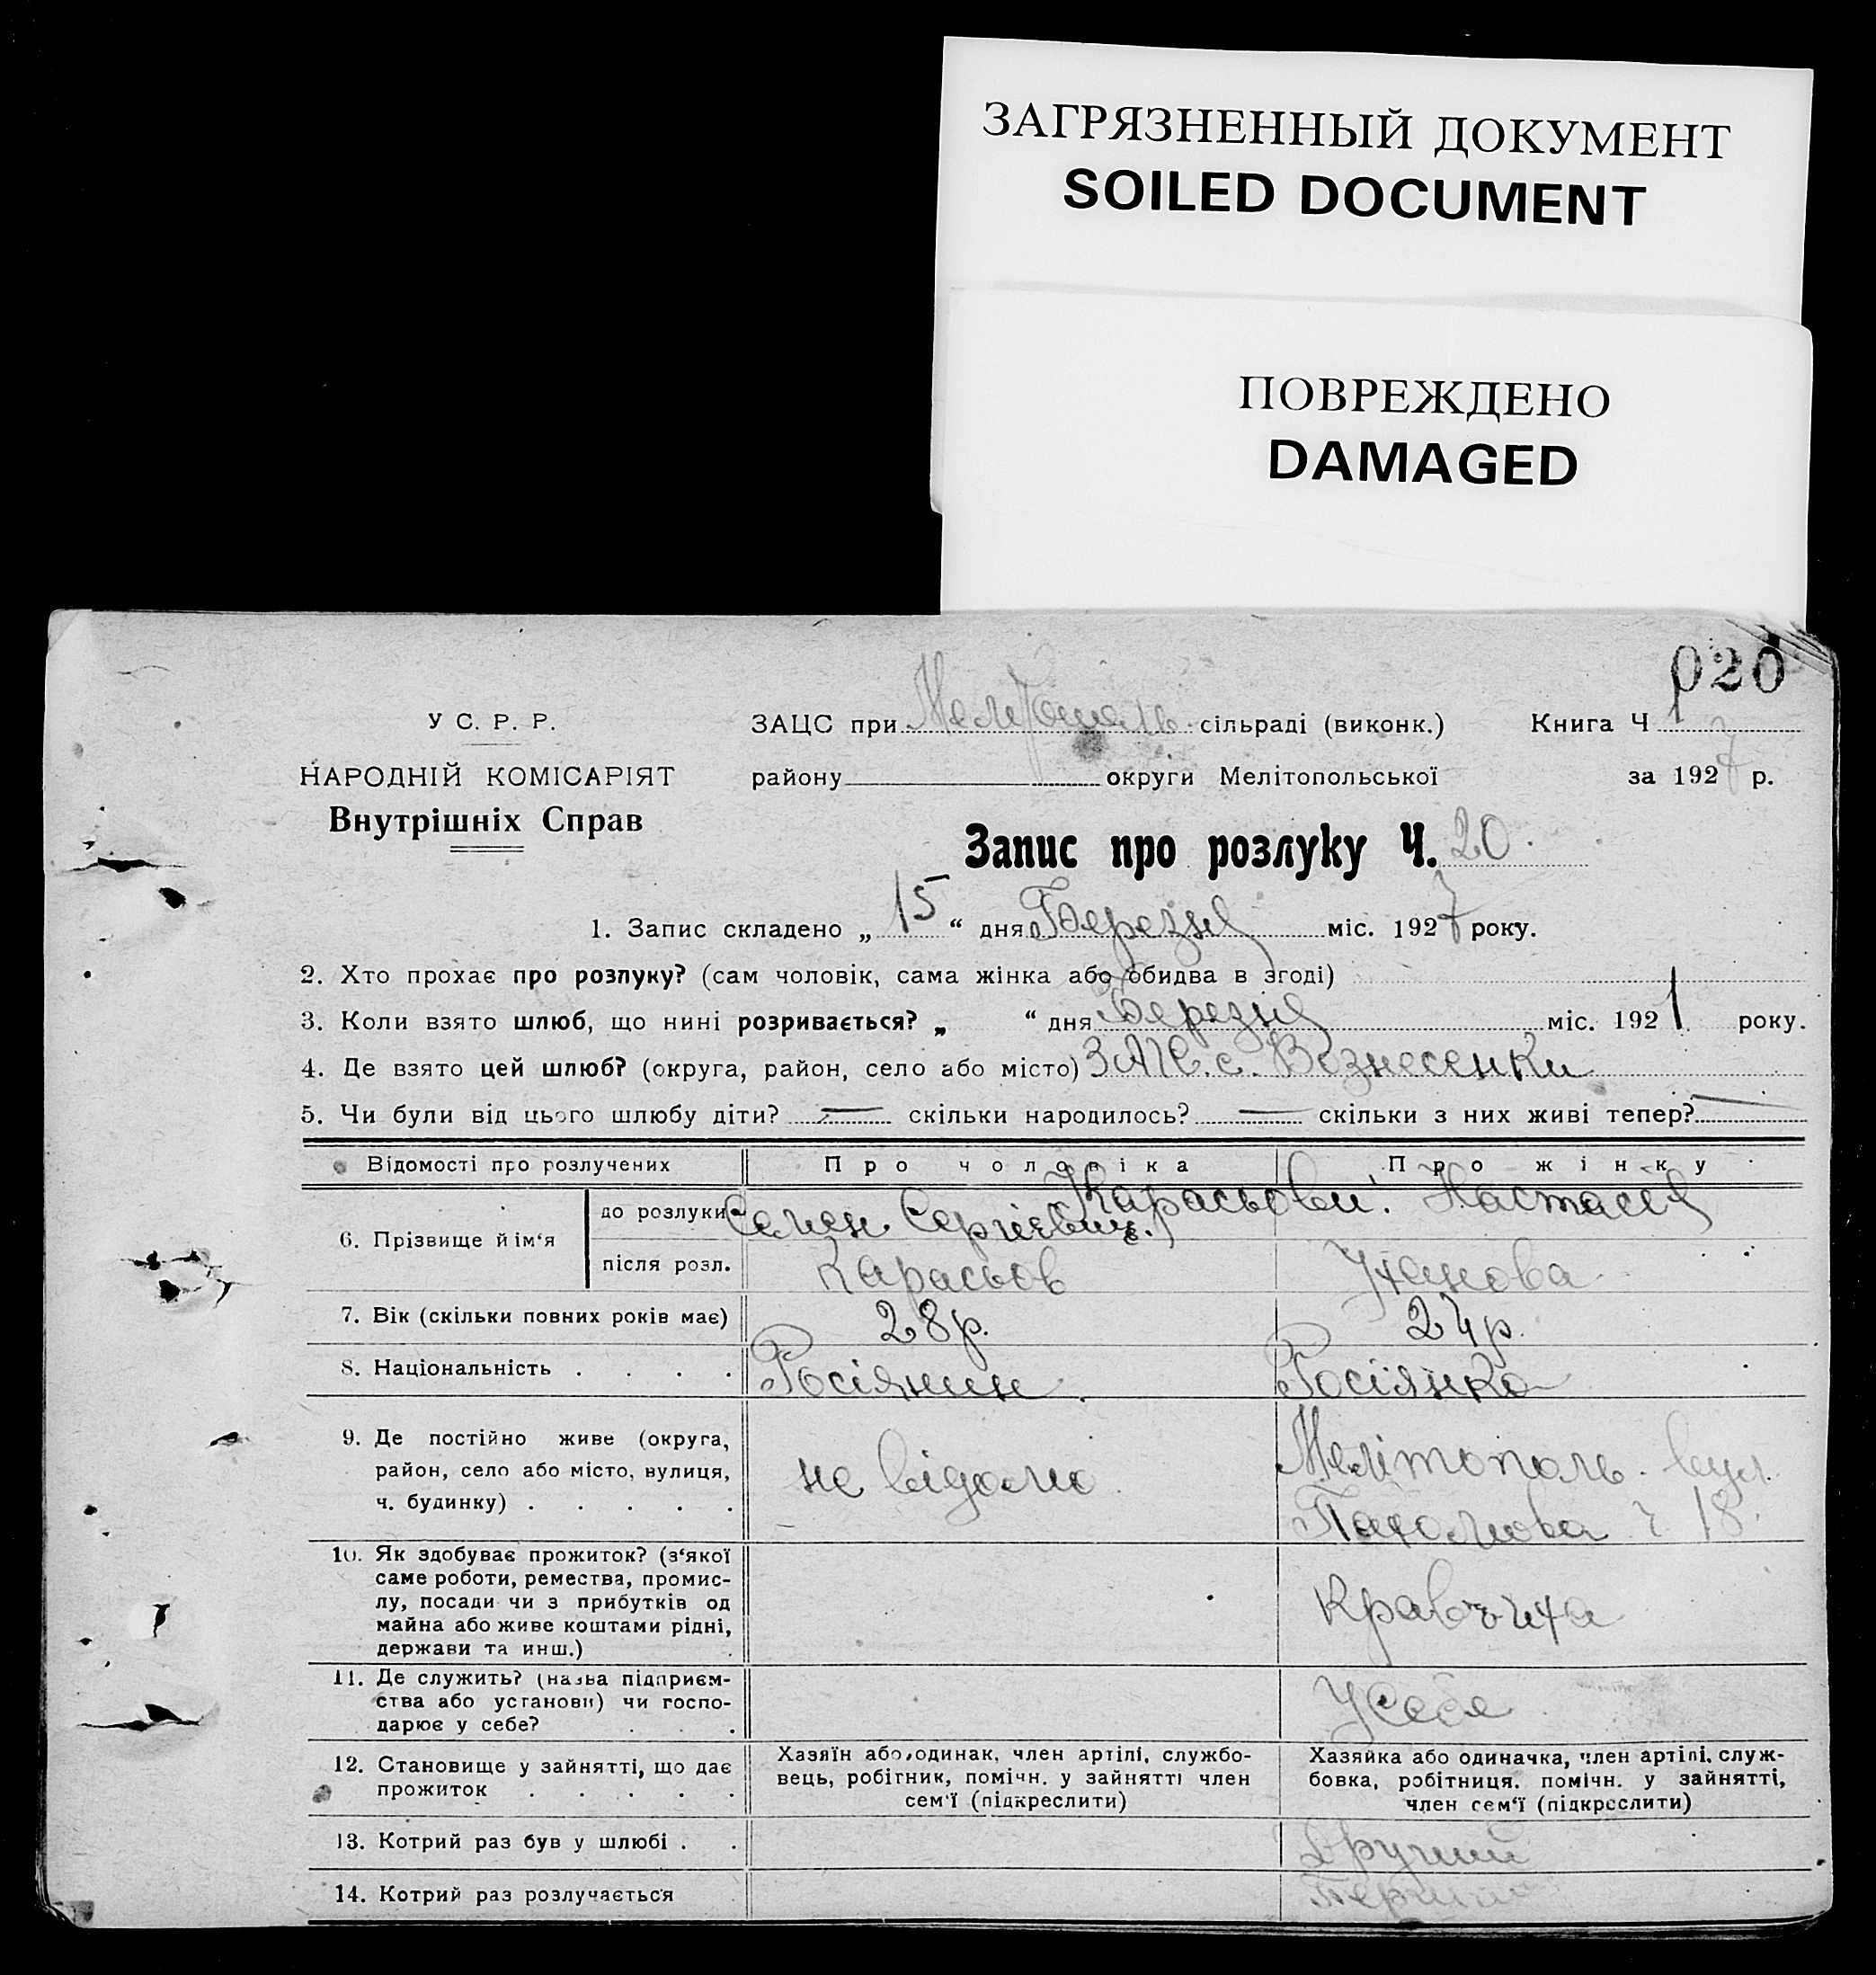 ЗАГРЯЗНЕННЫЙ ДОКУМЕНТ
SOILED DOCUMENT
ПОВРЕЖДЕНО
DAMAGED
020
У С. Р. Р.
НАРОДНІЙ КОМІСАРІЯТ
Внутрішніх Справ
ЗАЦС при Мелітополь сільраді (виконк.) Книга Ч
району округи Мелітопольської за 1927 р.
Запис про розлуку Ч. 20.
1. Запис складено „ 15 “ дня Березня міс. 1927 року.
2. Хто прохає про розлуку? (сам чоловік, сама жінка або обидва в згоді)
3. Коли взято шлюб, що нині розривається? „ “ дня Березня міс. 1921 року.
4. Де взято цей шлюб? (округа, район, село або місто) ЗАГС. с. Вознесенки
5. Чи були від цього шлюбу діти? — скільки народилось? — скільки з них живі тепер? —
Відомості про розлучених Про чоловіка Про жінку
6. Прізвище й ім‘я до розлуки Семен Сергієвич. Карасьови. Настасія
після розл. Карасьов Ужанова
7. Вік (скільки повних років має) 28р. 24р.
8. Національність . . . . Росіянин Росіянка
9. Де постійно живе (округа, район, село або місто, вулиця, ч. будинку) . . . . .
не відомо
Мелітополь. вул.
ч 18.
10. Як здобуває прожиток? (з‘якої саме роботи, ремества, промислу, посади чи з прибутків од майна або живе коштами рідні, держави та инш.)
Кравчиха
11. Де служить? (назва підприємства або установи) чи господарює у себе? . . .
У себе
12. Становище у зайнятті, що дає прожиток . . . . .
Хазяїн або одинак, член артілі, службовець, робітник, помічн. у зайнятті член сем‘ї (підкреслити)
Хазяйка або одиначка, член артілі, службовка, робітниця. помічн. у зайнятті, член сем‘ї (підкреслити)
13. Котрий раз був у шлюбі . . Другий
14. Котрий раз розлучається Перший